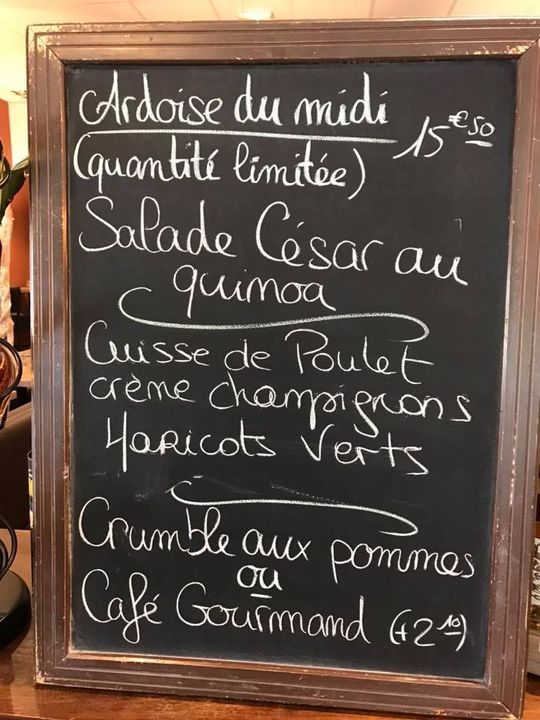 Ardoise du midi 15€50
(quantité limitée)
Salade César au
quinoa
Cuisse de Poulet
crème champignons
Haricots Verts
Crumble aux pommes
ou
Café Gourmand (+2 10)